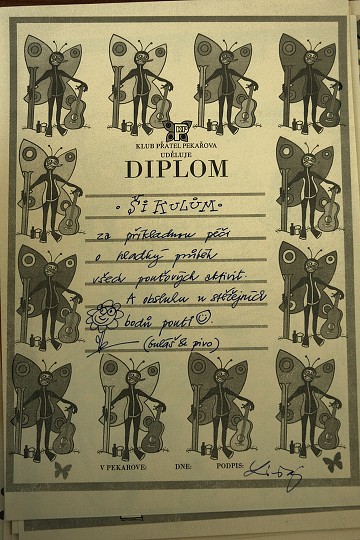 KPP
KLUB PŘÁTEL PEKAŘOVA
UDĚLUJE
DIPLOM
· ŠIKULŮM ·
za příkladnou péči
o hladký průběh
všech pouťových aktivit.
A obsluhu u stěžejních
bodů poutí ☺
(guláš & pivo)
V PEKAROVE: DNE: PODPIS: